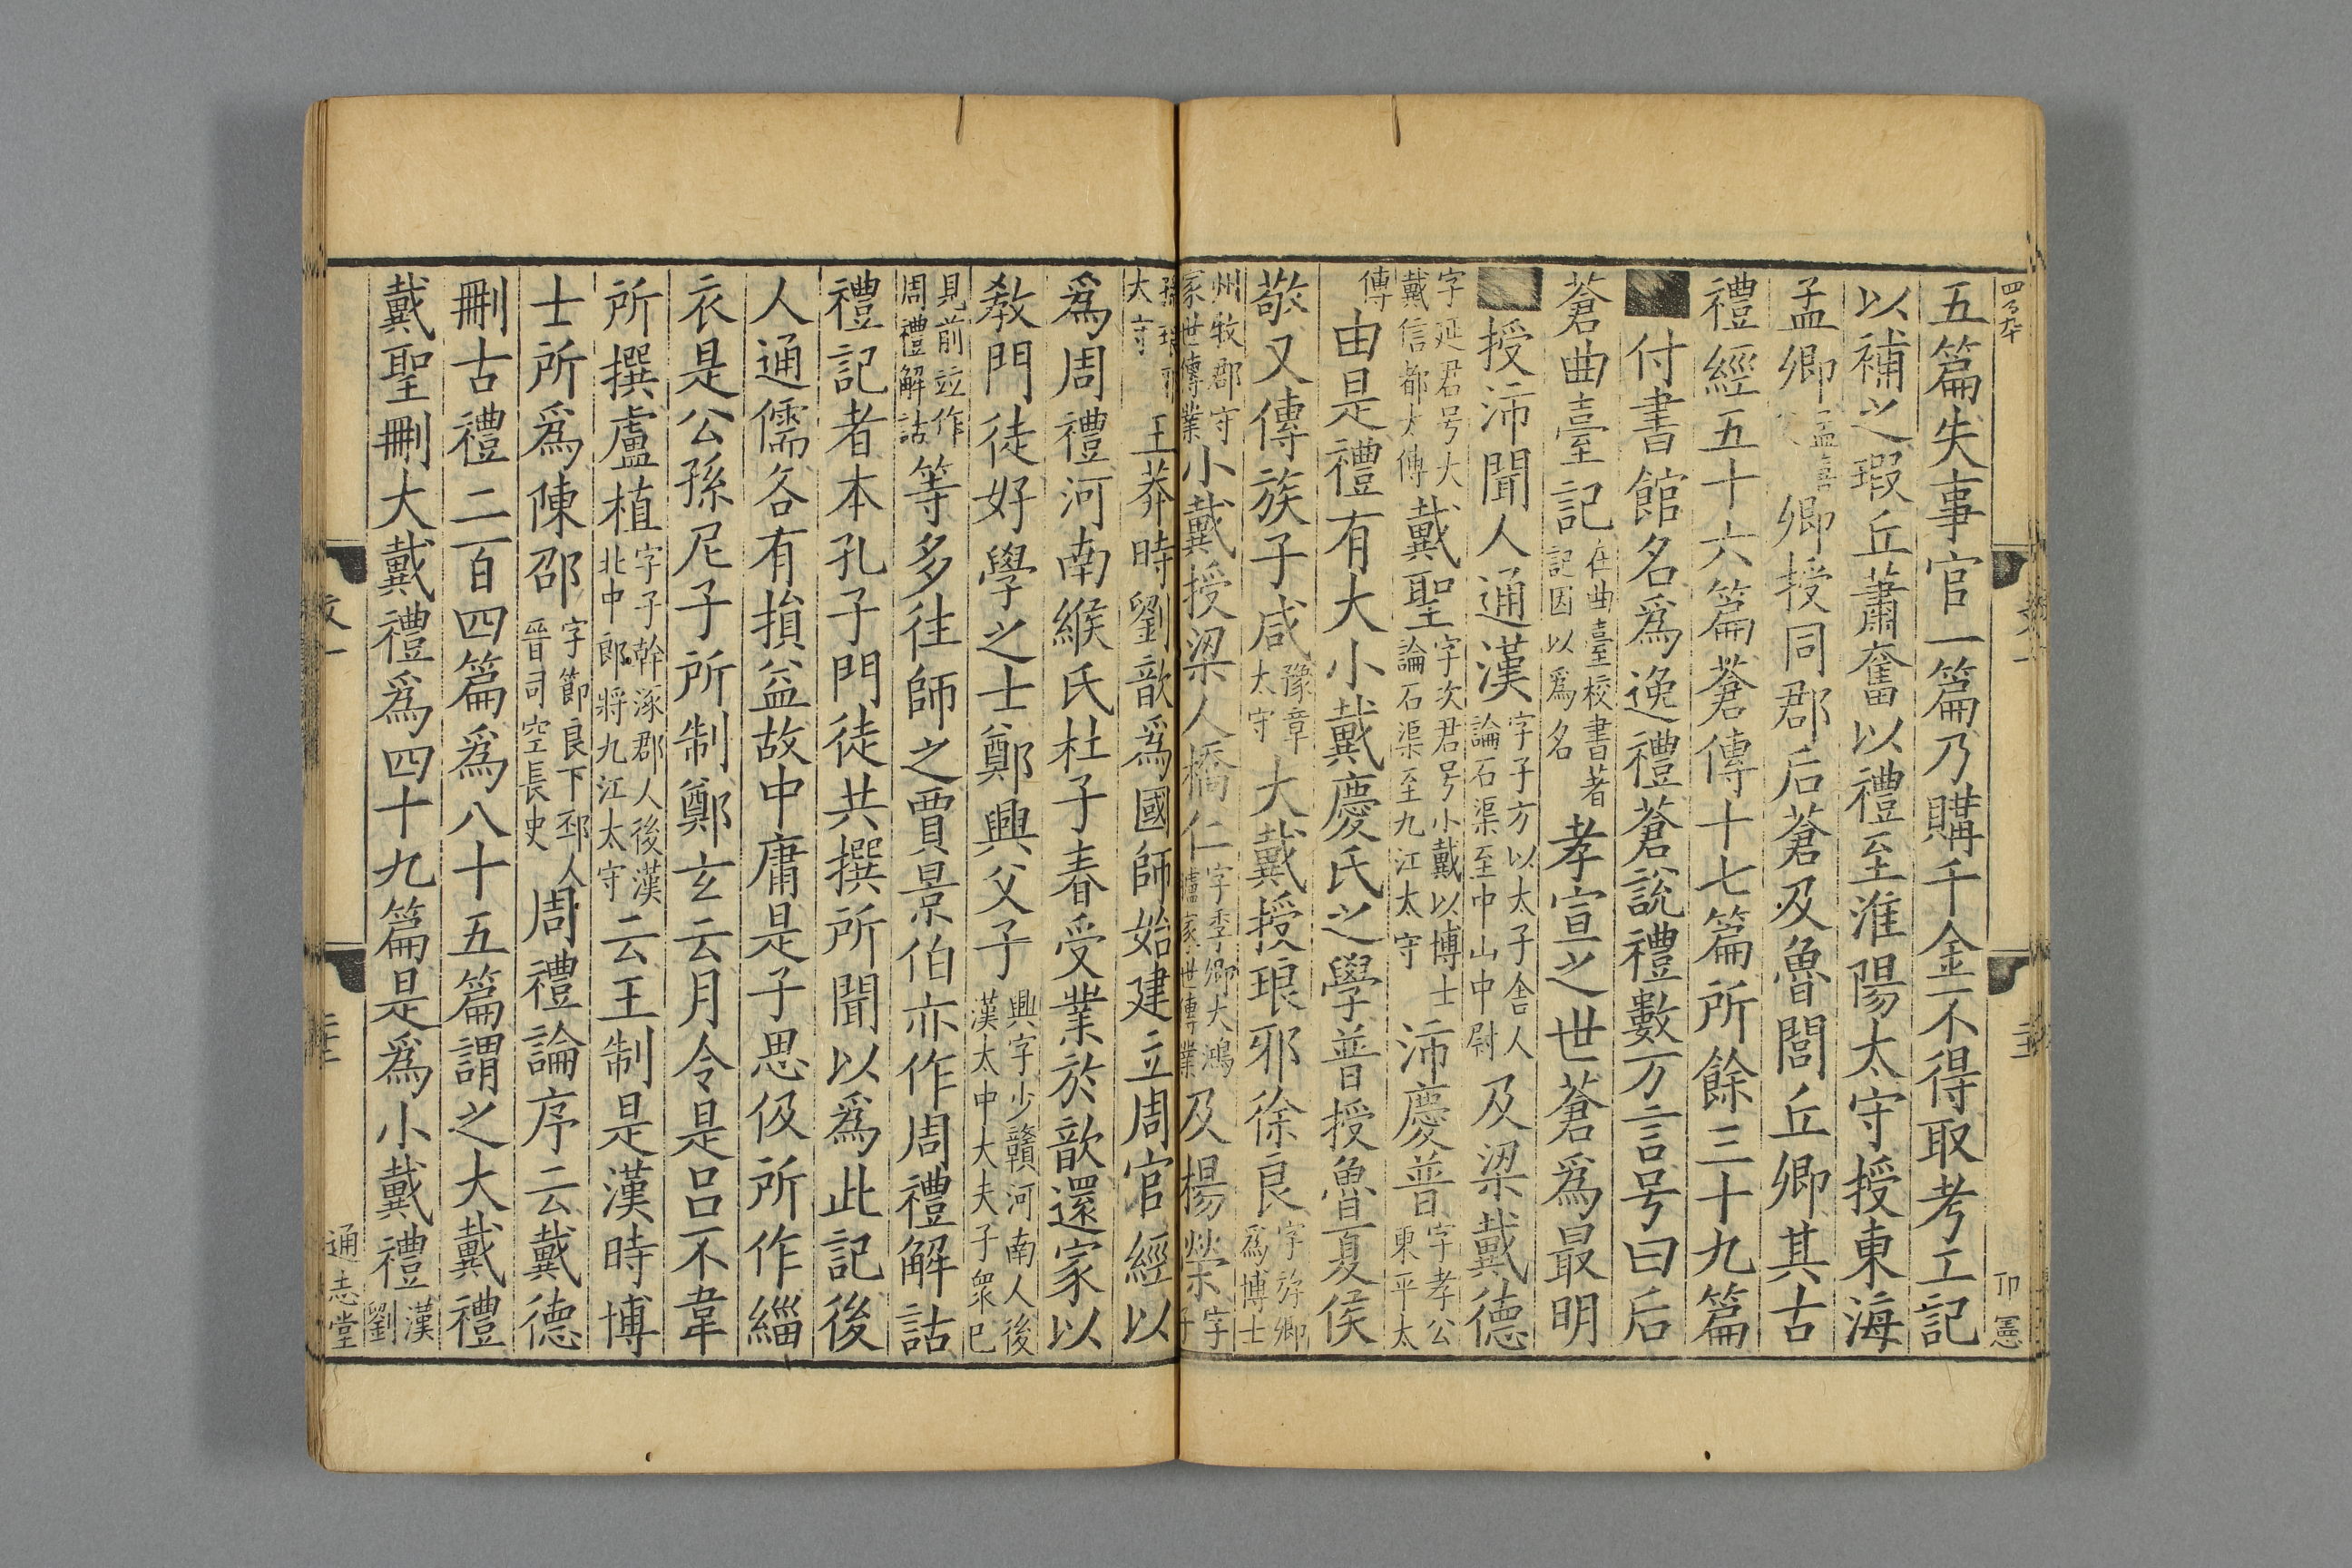 四百九十 印憲
五篇失事官一篇乃購千金不得取考工記
以補之瑕丘蕭奮以禮至淮陽太守授東海
孟卿孟喜卿授同郡后蒼及魯閭丘卿其古
禮經五十六篇蒼傳十七篇所餘三十九篇
付書館名爲逸禮蒼說禮數万言号曰后
蒼曲臺記在曲臺校書著記因以爲名孝宣之世蒼爲最明
授沛聞人通漢字子方以太子舍人論石渠至中山中尉及梁戴德
字延君号大戴信都太傅戴聖字次君号小戴以博士論石渠至九江太守沛慶普字孝公東平太
傅由是禮有大小戴慶氏之學普授魯夏侯
敬又傳族子咸豫章太守大戴授琅邪徐良字斿卿爲博士
州牧郡守家世傳業小戴授梁人橋仁字季卿大鴻臚家世傳業及楊榮字子
孫琅邪大守王莽時劉歆爲國師始建立周官經以
爲周禮河南緱氏杜子春受業於歆還家以
教門徒好學之士鄭興父子興字少贛河南人後漢太中大夫子衆已
見前竝作周禮解詁等多往師之賈景伯亦作周禮解詁
禮記者本孔子門徒共撰所聞以爲此記後
人通儒各有損益故中庸是子思伋所作緇
衣是公孫尼子所制鄭玄云月令是呂不韋
所撰盧植字子幹涿郡人後漢北中郎將九江太守云王制是漢時博
士所爲陳邵字節良下邳人晉司空長史周禮論序云戴德
刪古禮二百四篇爲八十五篇謂之大戴禮
戴聖刪大戴禮爲四十九篇是爲小戴禮漢劉
通志堂